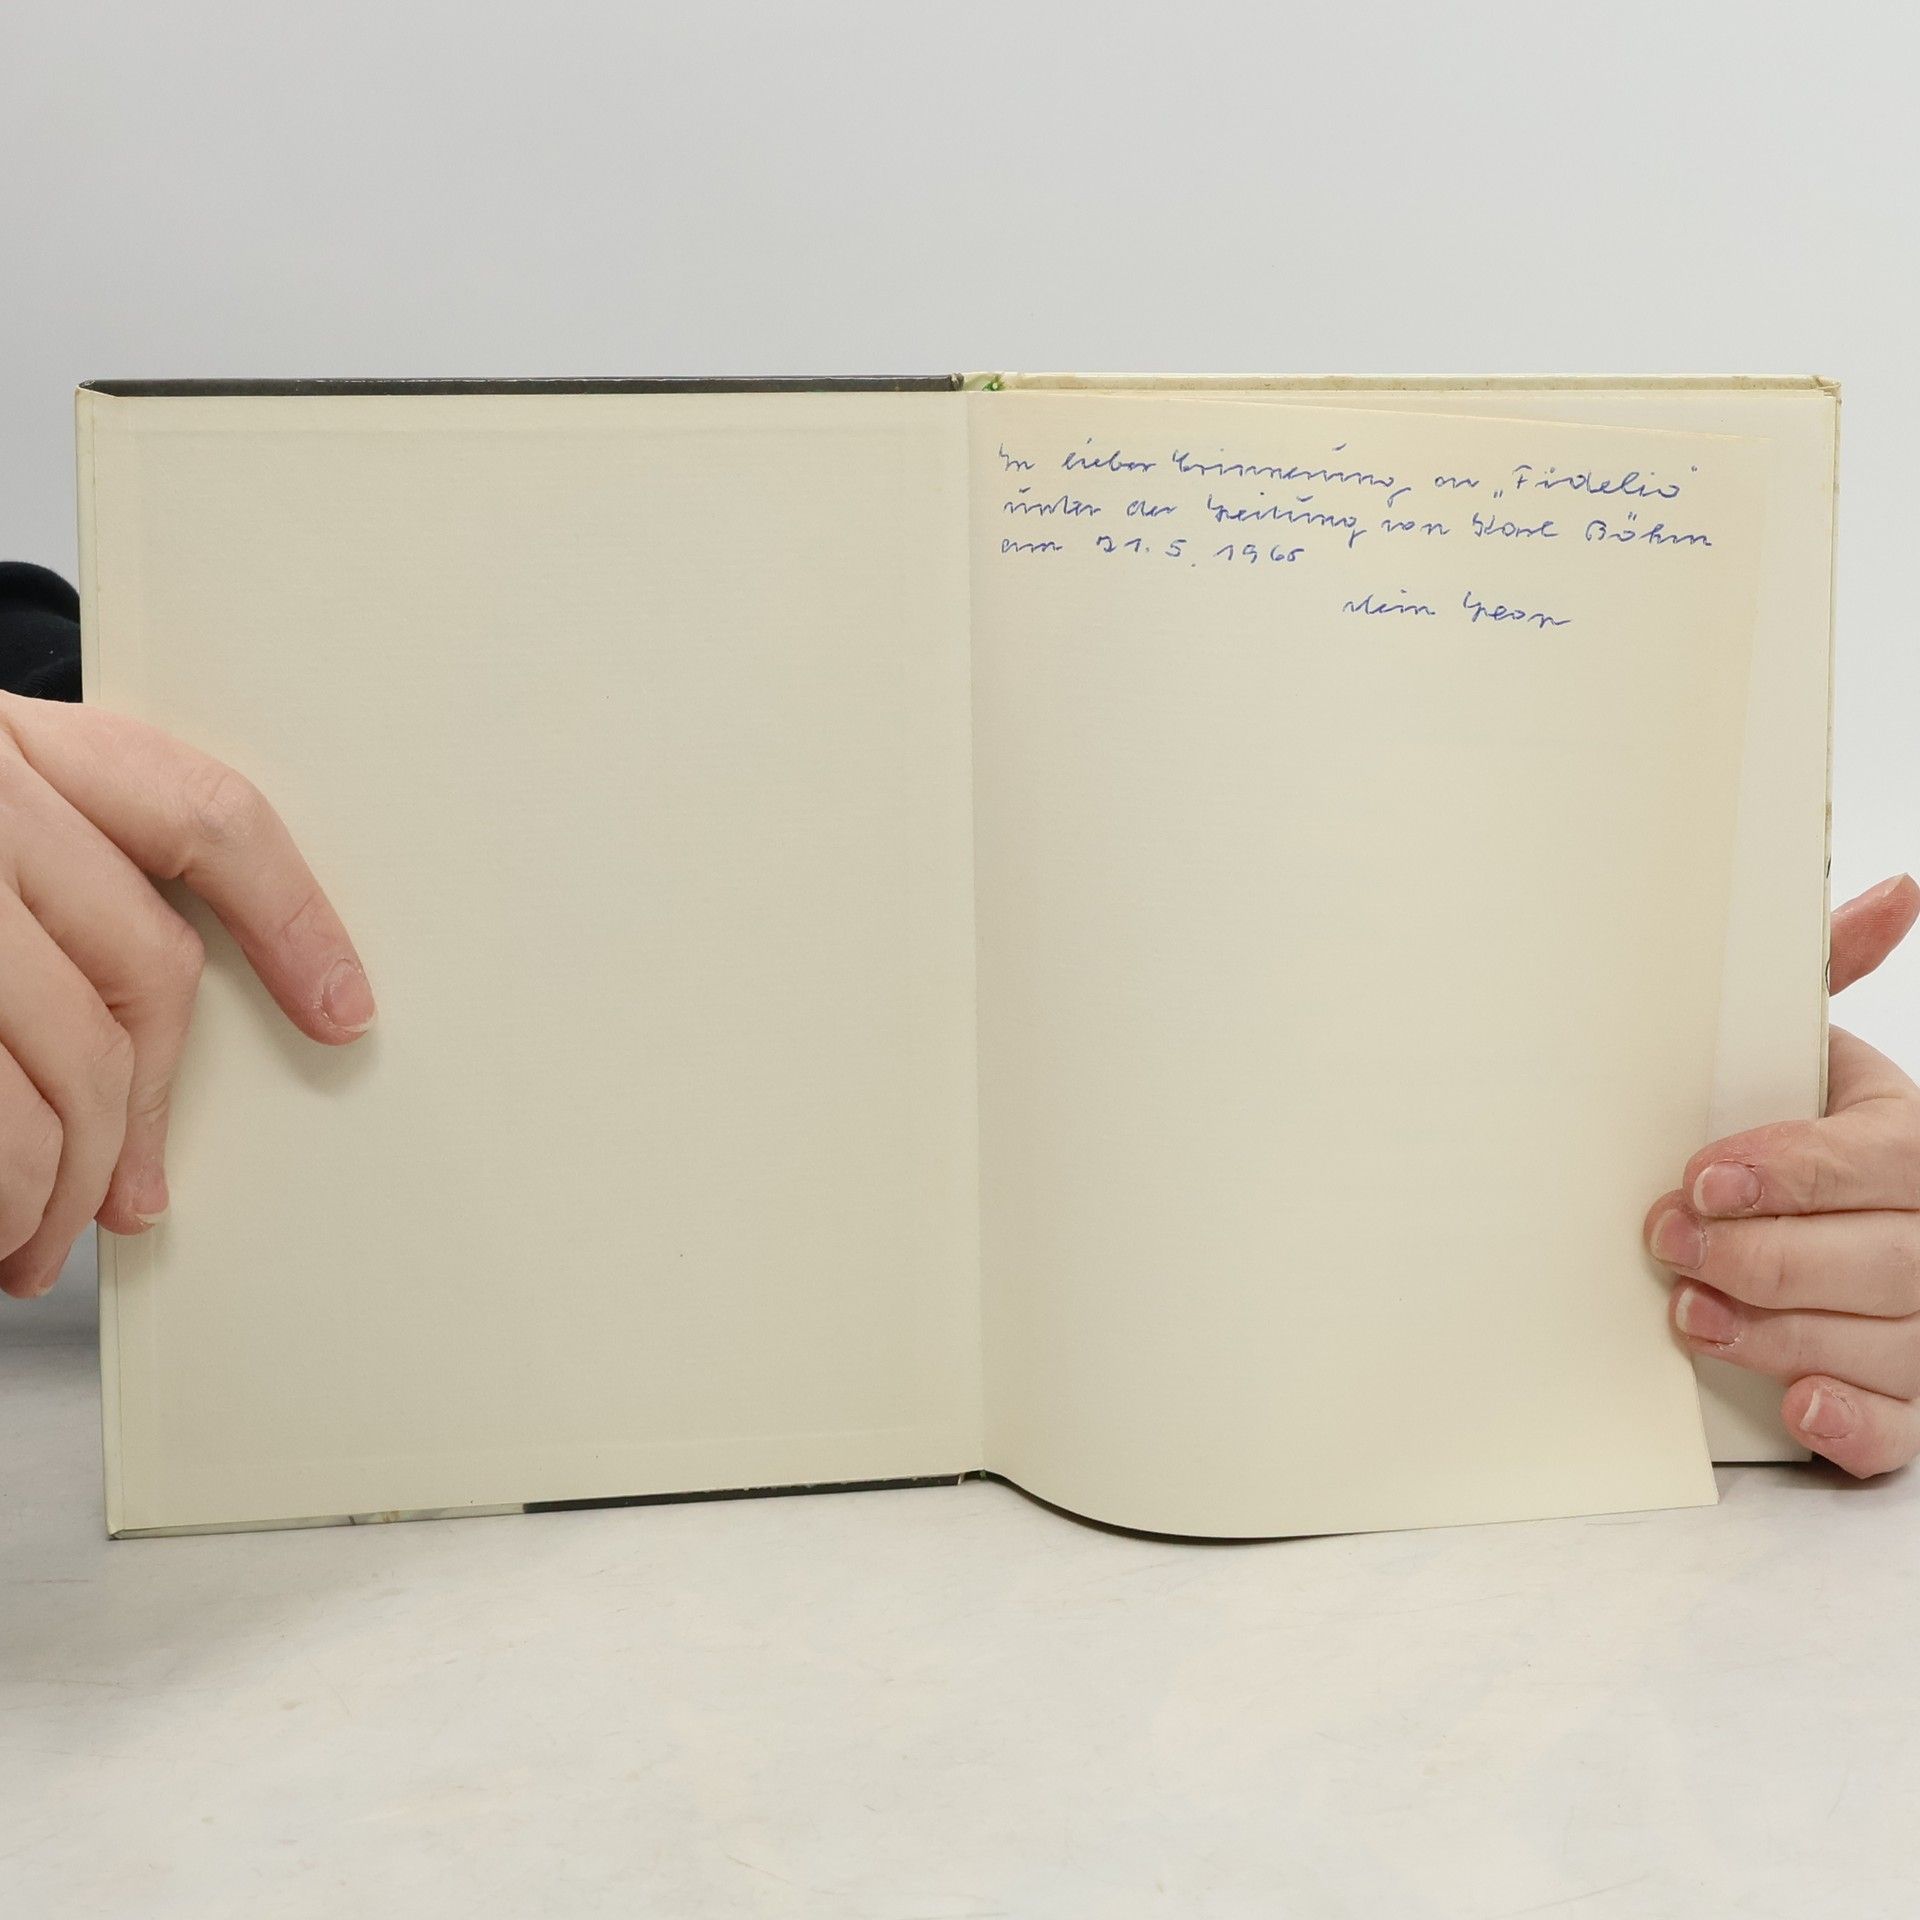 In lieber Erinnerung an „Fidelio“
unter der Leitung von Karl Böhm
am 21. 5. 1965
Dein